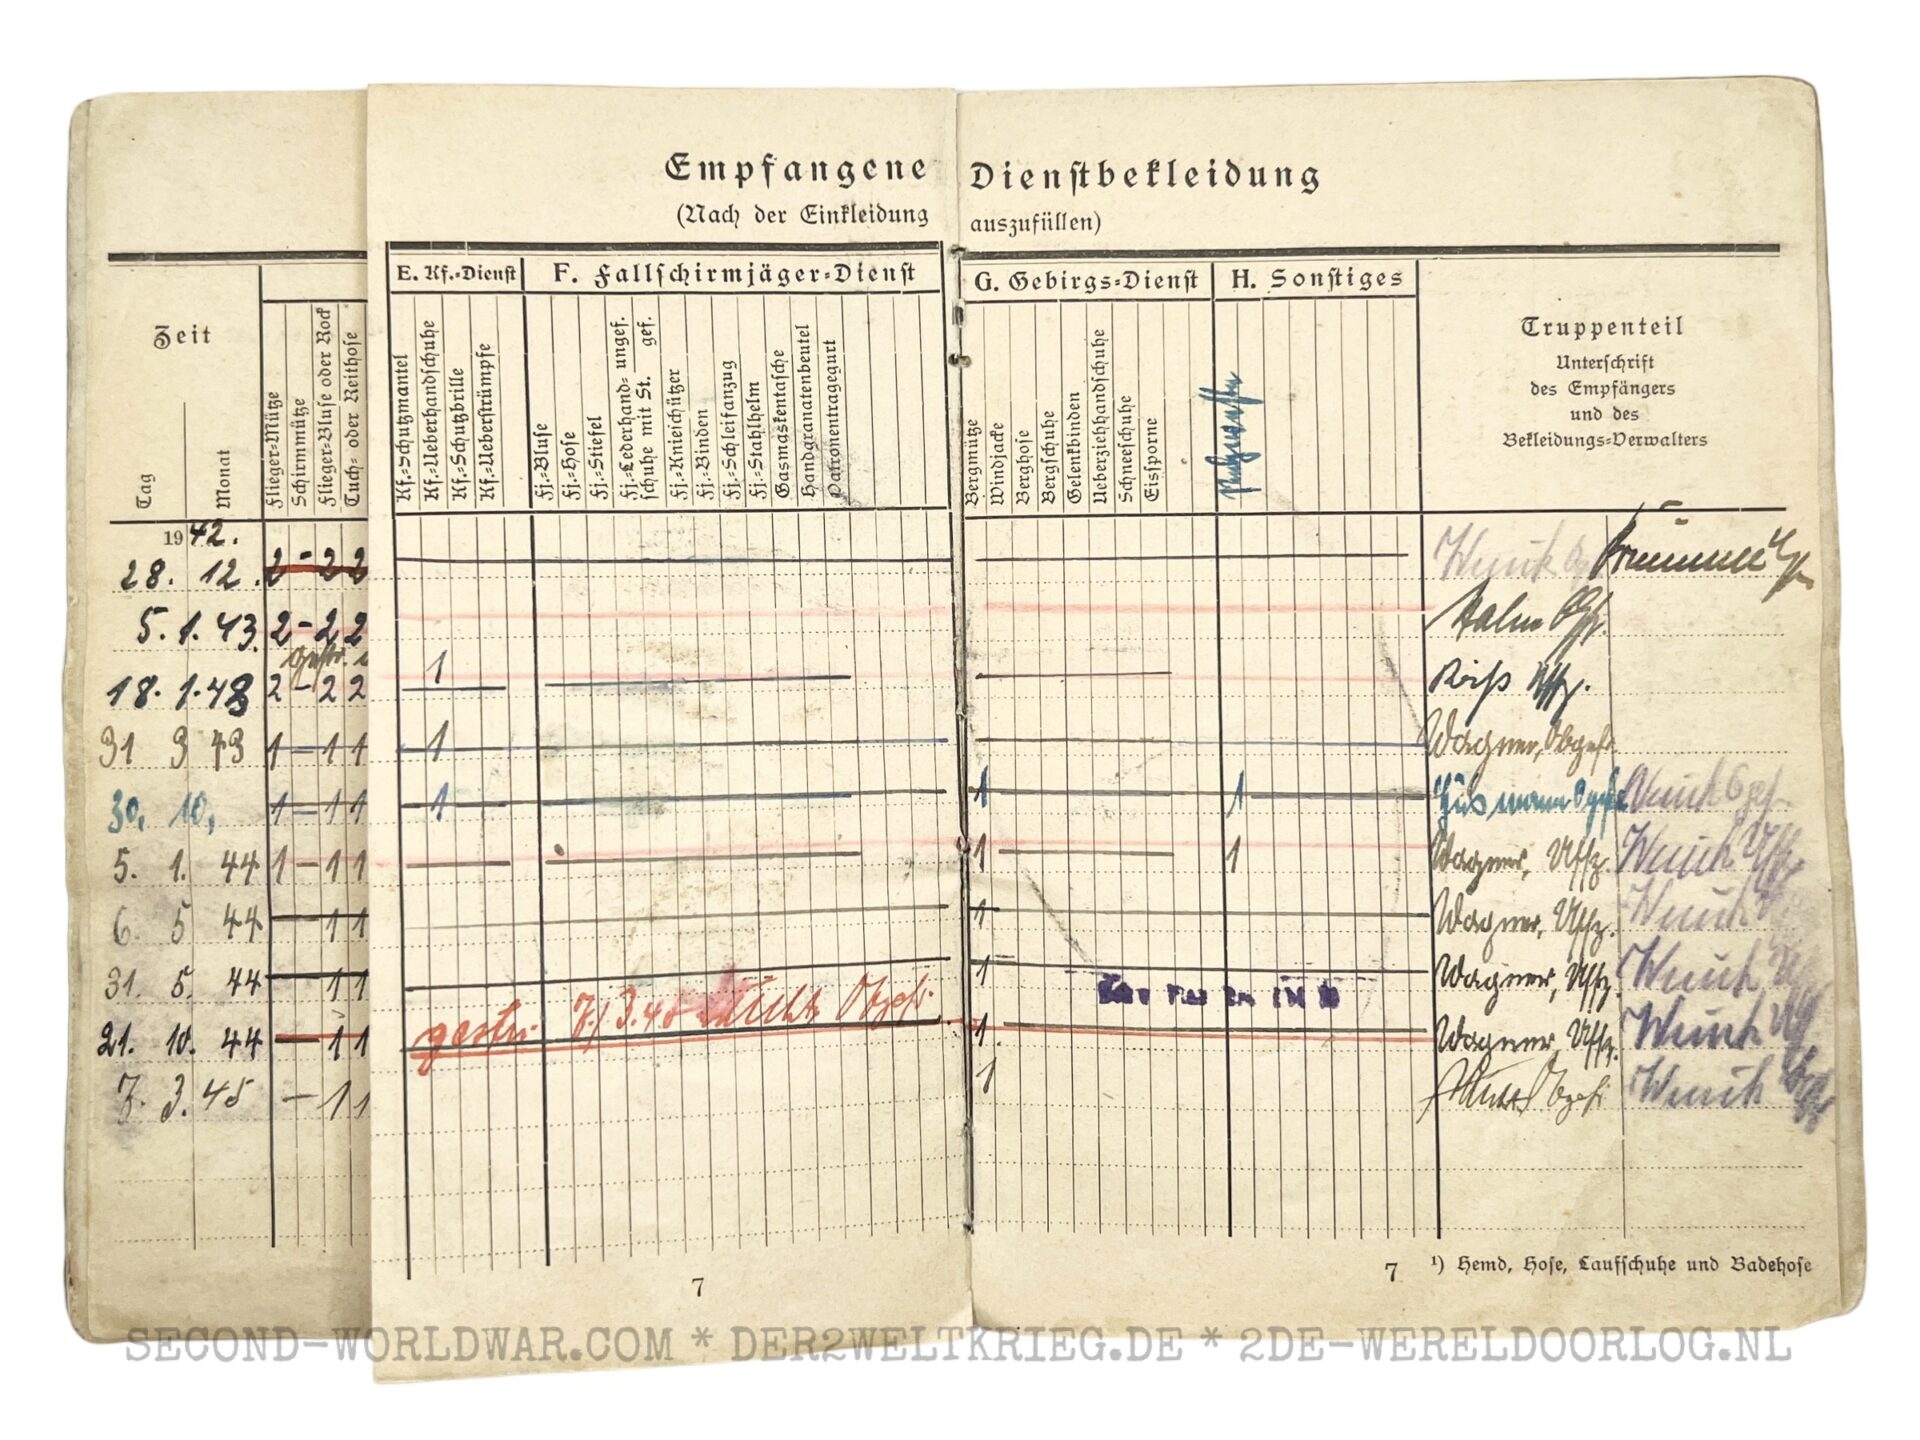 Empfangene Dienstbekleidung
(Nach der Einkleidung auszufüllen)
Zeit
Tag
Monat
Flieger-Mütze
Schirmmütze
Flieger-Bluse oder Rock
Tuch- oder Reithose
E. Kf.-Dienst
Kf.-Schutzmantel
Kf.-Ueberhandschuhe
Kf.-Schutzbrille
Kf.-Ueberstrümpfe
F. Fallschirmjäger-Dienst
Fj.-Bluse
Fj.-Hose
Fj.-Stiefel
Fj.-Lederhand- ungef.
schuhe mit St. gef.
Fj.-Knieschützer
Fj.-Binden
Fj.-Schleifanzug
Fj.-Stahlhelm
Gasmaskentasche
Handgranatenbeutel
Patronentragegurt
G. Gebirgs-Dienst
Bergmütze
Windjacke
Berghose
Bergschuhe
Gelenkbinden
Ueberziehhandschuhe
Schneeschuhe
Eissporne
H. Sonstiges
Truppenteil
Unterschrift
des Empfängers
und des
Bekleidungs-Verwalters
1942.
28. 12. 2 - 2 2 Wenk
5. 1. 43. 2 - 2 2
gestr. 1
18. 1. 43 2 - 2 2 Uffz.
31 3 43 1 - 1 1 1 Wagner, Obgefr.
30. 10. 1 - 1 1 1 1 1
5. 1. 44 1 - 1 1 1 1 Wagner, Uffz.
6. 5 44 - 1 1 1 Wagner, Uffz.
31. 5. 44 - 1 1 1 Wagner, Uffz.
gestr. 7/3.45 Obgefr.
21. 10. 44 - 1 1 1 Wagner, Uffz.
7. 3. 45 - 1 1 1 Obgefr.
7
7
¹) Hemd, Hose, Laufschuhe und Badehose
SECOND-WORLDWAR.COM * DER2WELTKRIEG.DE * 2DE-WERELDOORLOG.NL